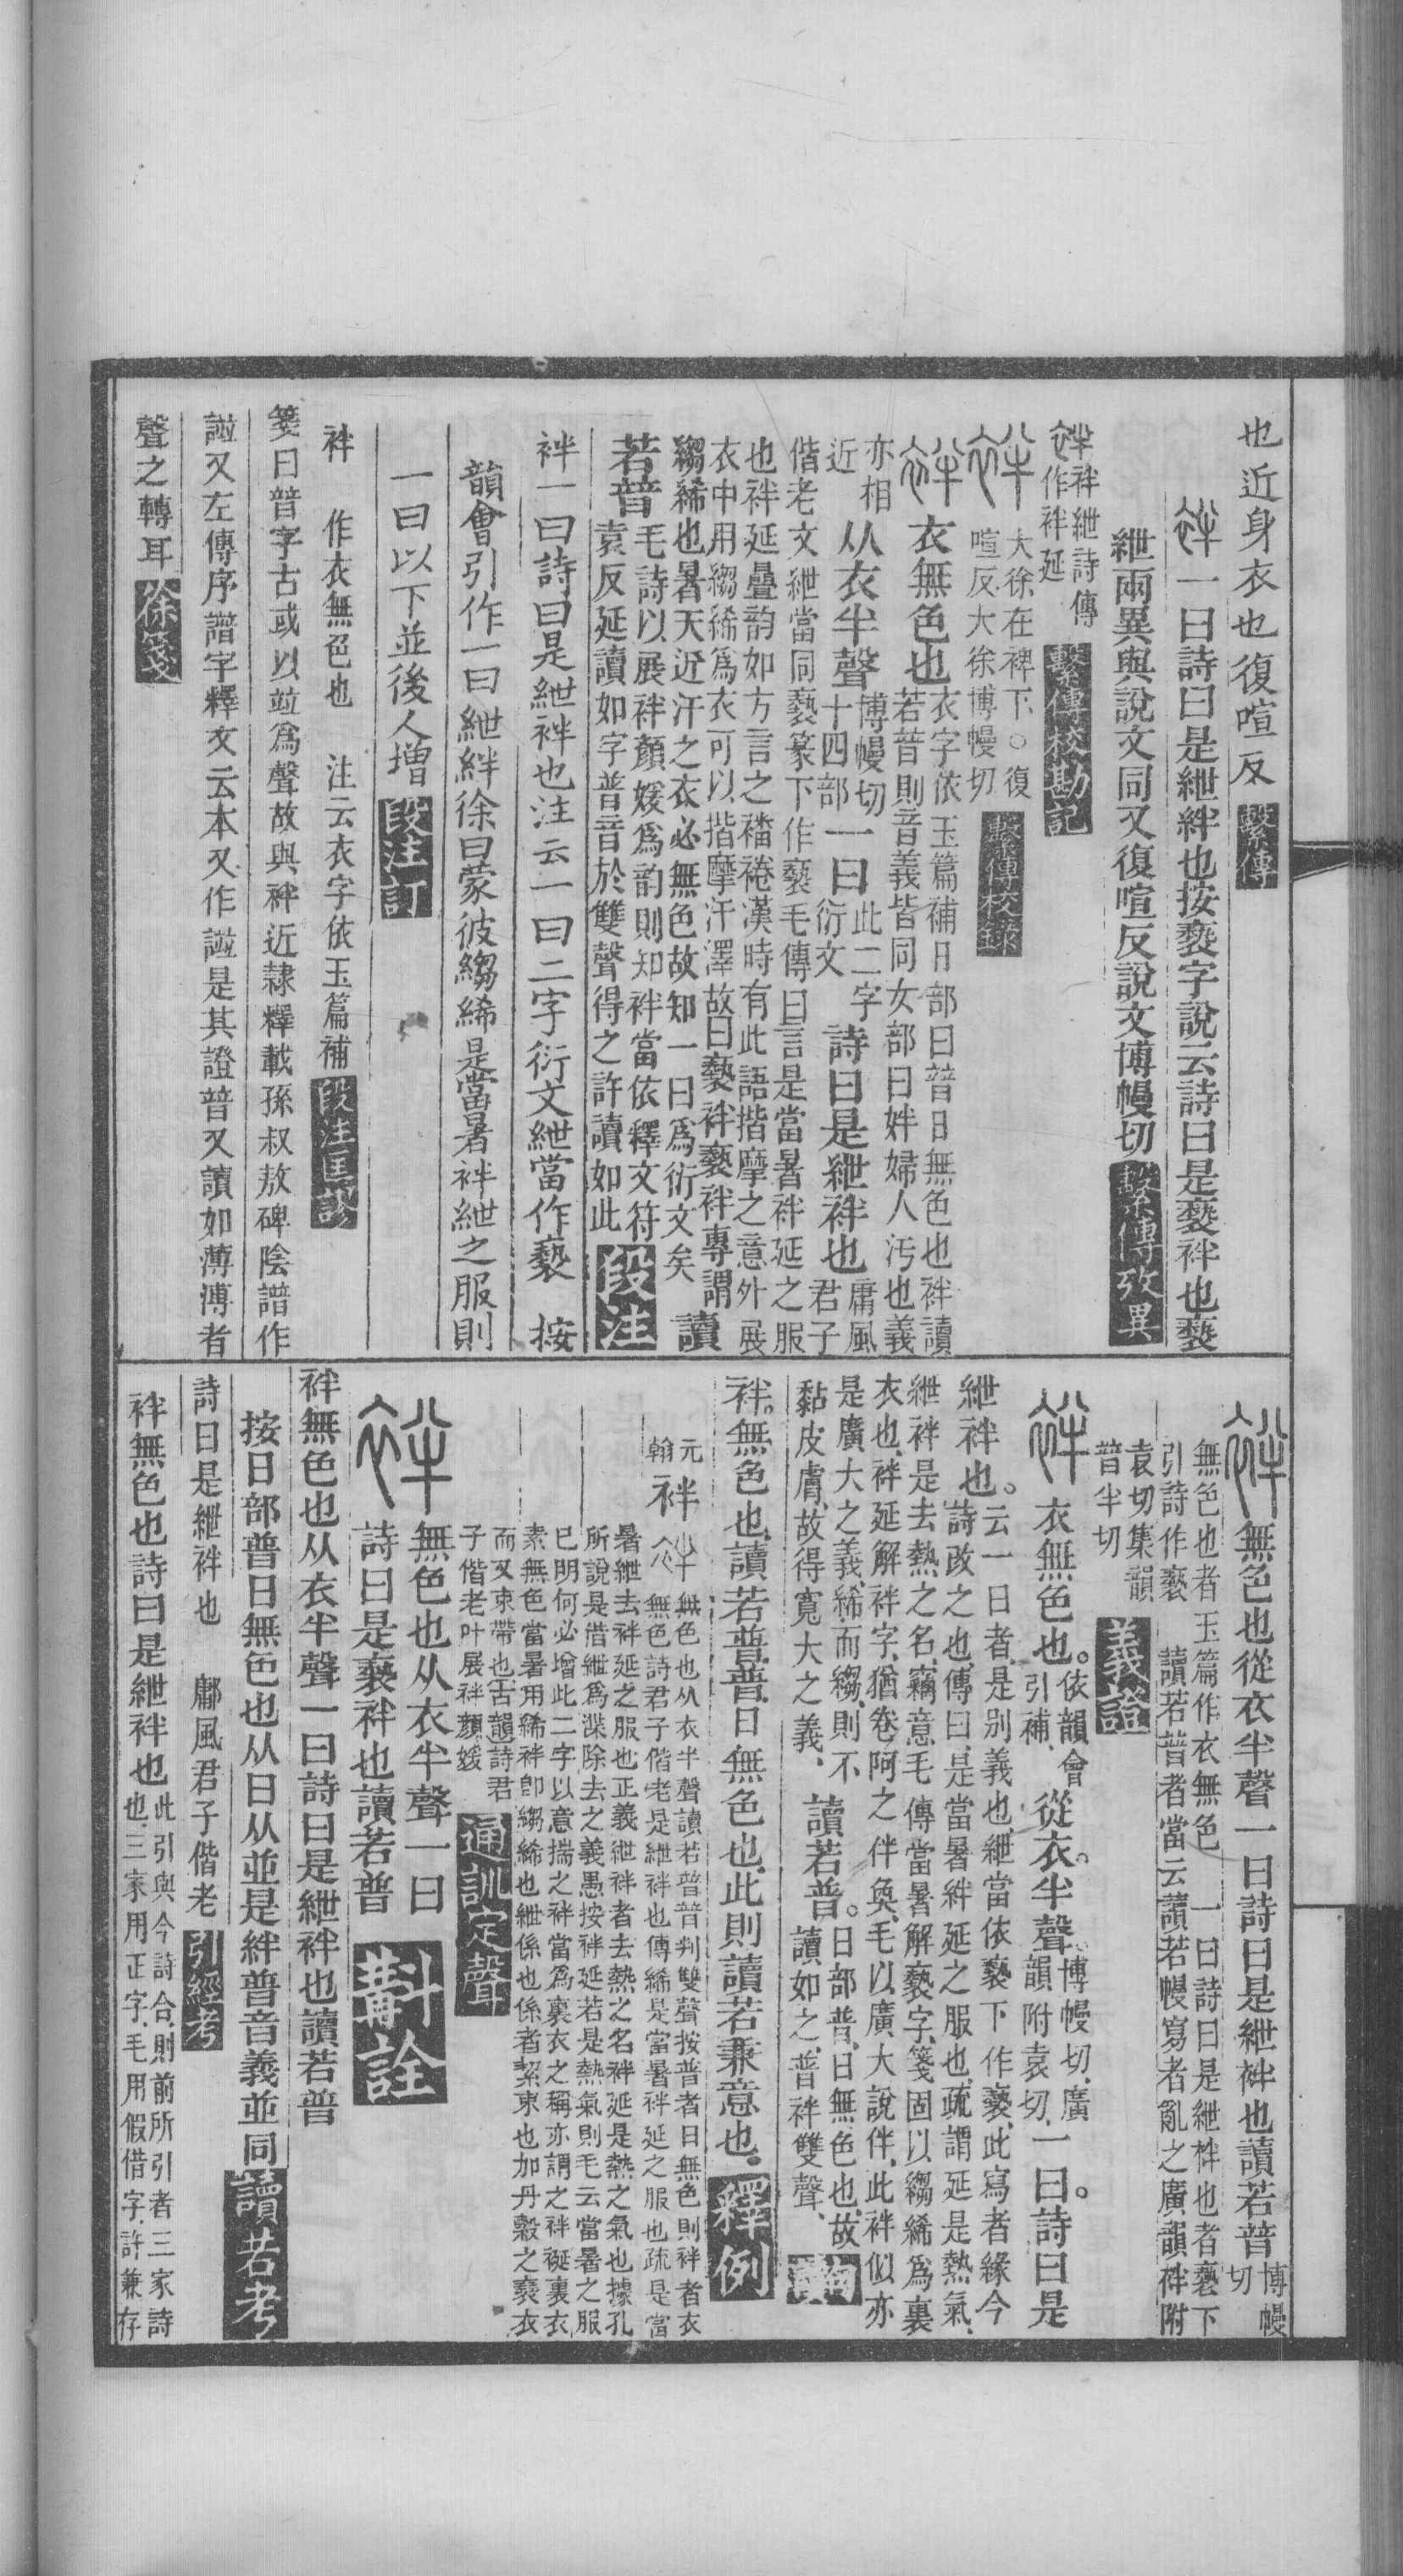 也近身衣也復喧反 繫傳
袢一曰詩曰是紲絆也按褻字說云詩曰是褻袢也褻
紲兩異與說文同又復喧反說文博幔切 繫傳攷異
袢 袢紲詩傳
作袢延 繫傳校勘記
袢 大徐在裨下○復
喧反大徐博幔切 繫傳校錄
袢 衣無色也 衣字依玉篇補日部曰暜日無色也袢讀
若普則音義皆同女部曰姅婦人污也義
亦相
近 从衣半聲 博幔切
十四部 一曰 此二字
衍文 詩曰是紲袢也 庸風
君子
偕老文紲當同褻篆下作褻毛傳曰言是當暑袢延之服
也袢延疊韵如方言之襎裷漢時有此語揩摩之意外展
衣中用縐絺爲衣可以揩摩汗澤故曰褻袢褻袢專謂
縐絺也暑天近汗之衣必無色故知一曰爲衍文矣 讀
若普 毛詩以展袢顏媛爲韵則知袢當依釋文符
袁反延讀如字普音於雙聲得之許讀如此 段注
袢一曰詩曰是紲袢也注云一曰二字衍文紲當作褻 按
韻會引作一曰紲絆徐曰蒙彼縐絺是當暑袢紲之服則
一曰以下並後人增 段注訂
袢 作衣無色也 注云衣字依玉篇補 段注匡謬
箋曰普字古或以竝爲聲故與袢近隸釋載孫叔敖碑陰譜作
諩又左傳序譜字釋文云本又作諩是其證普又讀如薄溥者
聲之轉耳 徐箋
袢 無色也從衣半聲一曰詩曰是紲袢也讀若普 博幔
切
無色也者玉篇作衣無色 一曰詩曰是紲袢也者褻下
引詩作褻 讀若普者當云讀若幔寫者亂之廣韻袢附
袁切集韻
普半切 義證
袢 衣無色也。依韻會
引補、從衣。半聲。博幔切、廣
韻附袁切、一曰。詩曰是
紲袢也。云一曰者、是別義也、紲當依褻下作褻、此寫者緣今
詩改之也、傳曰、是當暑絆延之服也、疏謂延是熱氣、
紲袢是去熱之名、竊意毛傳當暑解褻字、箋固以縐絺爲裏
衣也、袢延解袢字、猶卷阿之伴奐、毛以廣大說伴、此袢似亦
是廣大之義、絺而縐、則不
黏皮膚、故得寬大之義、 讀若普。日部普、日無色也、故
讀如之、普袢雙聲、
袢。無色也、讀若普、普、日無色也、此則讀若兼意也、 釋例
元
翰 袢 無色也从衣半聲讀若普普判雙聲按普者日無色則袢者衣
無色詩君子偕老是紲袢也傳絺是當暑袢延之服也疏是當
暑紲去袢延之服也正義紲袢者去熱之名袢延是熱之氣也據孔
所說是借紲爲渫除去之義愚按袢延若是熱氣則毛云當暑之服
已明何必增此二字以意揣之袢當爲裏衣之稱亦謂之袢褻裏衣
素無色當暑用絺袢卽縐絺也紲係也係者絜束也加丹縠之褻衣
而又束帶也古韻詩君
子偕老叶展袢顏媛 通訓定聲
袢 無色也从衣半聲一曰
詩曰是褻袢也讀若普 斠詮
袢無色也从衣半聲一曰詩曰是紲袢也讀若普
按日部普日無色也从日从並是絆普音義並同 讀若考
詩曰是紲袢也 鄘風君子偕老 引經考
袢無色也詩曰是紲袢也 此引與今詩合、則前所引者三家詩
也、三家用正字、毛用假借字、許兼存